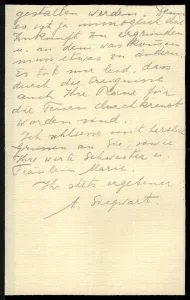 gestalten werden. Denn
es ist ja unmöglich die
Zukunft zu ergründen
u. an dem was kommen
muss etwas zu ändern.
Es tut mir leid, dass
durch die Ereignisse
auch Ihre Pläne für
die Ferien durchkreuzt
worden sind.
Ich schliesse mit herzlichen
Grüssen an Sie, sowie
Ihre werte Schwester u.
Fräulein Marie.
Ihr stets ergebener
A. Siegwart